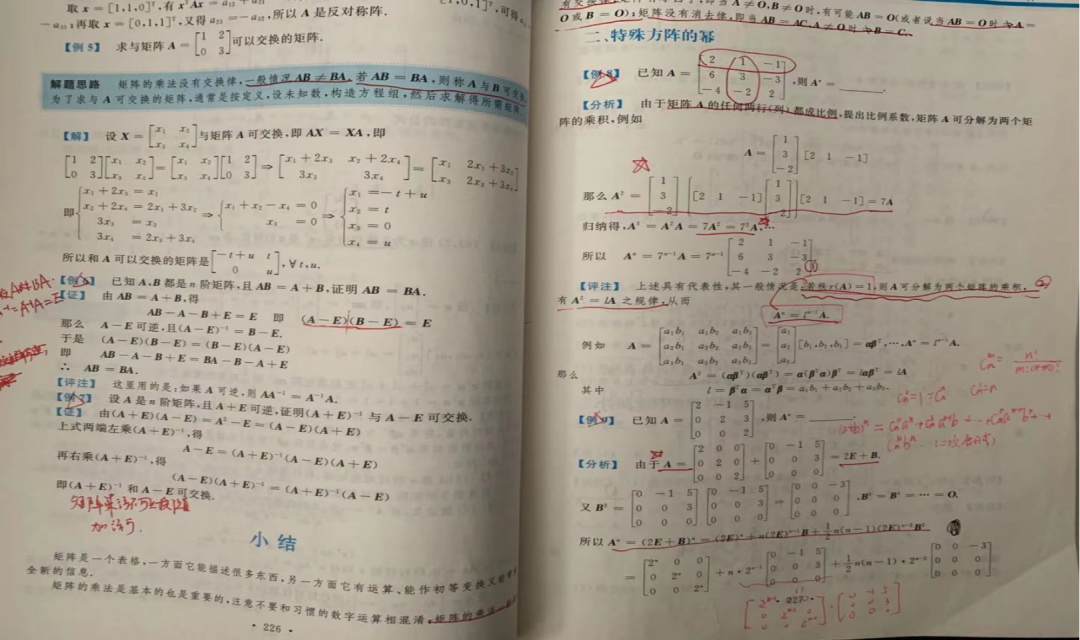 取 x = [1,1,0]ᵀ,有 xᵀAx = a₁₂ + a₂₁
−a₃₁;再取 x = [0,1,1]ᵀ,又得 a₂₃ = −a₃₂,所以 A 是反对称阵.
【例 5】 求与矩阵 A = [1 2; 0 3] 可以交换的矩阵.
解题思路 矩阵的乘法没有交换律,一般情况 AB ≠ BA,若 AB = BA,则称 A 与 B 可交换.
为了求与 A 可交换的矩阵,通常是按定义,设未知数,构造方程组,然后求解得所需矩阵.
【解】 设 X = [x₁ x₂; x₃ x₄] 与矩阵 A 可交换,即 AX = XA,即
[1 2; 0 3][x₁ x₂; x₃ x₄] = [x₁ x₂; x₃ x₄][1 2; 0 3] ⇒ [x₁ + 2x₃ x₂ + 2x₄; 3x₃ 3x₄] = [x₁ 2x₁ + 3x₂; x₃ 2x₃ + 3x₄]
即 {x₁ + 2x₃ = x₁; x₂ + 2x₄ = 2x₁ + 3x₂; 3x₃ = x₃; 3x₄ = 2x₃ + 3x₄ ⇒ {x₁ + x₂ − x₄ = 0; x₃ = 0 ⇒ {x₁ = −t + u; x₂ = t; x₃ = 0; x₄ = u
所以和 A 可以交换的矩阵是 [−t + u t; 0 u], ∀t,u.
【例 6】 已知 A,B 都是 n 阶矩阵,且 AB = A + B,证明 AB = BA.
【证】 由 AB = A + B,得
AB − A − B + E = E 即 (A − E)(B − E) = E
那么 A − E 可逆,且 (A − E)⁻¹ = B − E.
于是 (A − E)(B − E) = (B − E)(A − E)
即 AB − A − B + E = BA − B − A + E
∴ AB = BA.
【评注】 这里用的是:如果 A 可逆,则 AA⁻¹ = A⁻¹A.
【例 7】 设 A 是 n 阶矩阵,且 A + E 可逆,证明 (A + E)⁻¹ 与 A − E 可交换.
【证】 由 (A + E)(A − E) = A² − E = (A − E)(A + E)
上式两端左乘 (A + E)⁻¹,得
A − E = (A + E)⁻¹(A − E)(A + E)
再右乘 (A + E)⁻¹,得
(A − E)(A + E)⁻¹ = (A + E)⁻¹(A − E)
即 (A + E)⁻¹ 和 A − E 可交换.
加法可.
小 结
矩阵是一个表格,一方面它能描述很多东西,另一方面它有运算、能作初等变换又能
全新的信息.
矩阵的乘法是基本的也是重要的,注意不要和习惯的数字运算相混淆,矩阵的乘法一
· 226 ·
A ≠ O, B ≠ O 时,有可能 AB = O(或者说当 AB = O 时 ⇏ A =
O 或 B = O);矩阵没有消去律,即当 AB = AC, A ≠ O 时 ⇏ B = C.
二、特殊方阵的幂
【例 8】 已知 A = [2 1 −1; 6 3 −3; −4 −2 2],则 Aⁿ = ______.
【分析】 由于矩阵 A 的任何两行(列)都成比例,提出比例系数,矩阵 A 可分解为两个矩
阵的乘积,例如
A = [1; 3; −2][2 1 −1]
那么 A² = [1; 3; −2] [[2 1 −1][1; 3; −2]] [2 1 −1] = 7A
归纳得,A³ = A²A = 7A² = 7²A,…
所以 Aⁿ = 7ⁿ⁻¹A = 7ⁿ⁻¹[2 1 −1; 6 3 −3; −4 −2 2]
【评注】 上述具有代表性,其一般情况是:若秩 r(A) = 1,则 A 可分解为两个矩阵的乘积,
有 A² = lA 之规律,从而
Aⁿ = lⁿ⁻¹A.
例如 A = [a₁b₁ a₁b₂ a₁b₃; a₂b₁ a₂b₂ a₂b₃; a₃b₁ a₃b₂ a₃b₃] = [a₁; a₂; a₃][b₁,b₂,b₃] = αβᵀ,…,Aⁿ = lⁿ⁻¹A.
那么 A² = (αβᵀ)(αβᵀ) = α(βᵀα)βᵀ = lαβᵀ = lA
其中 l = βᵀα = αᵀβ = a₁b₁ + a₂b₂ + a₃b₃.
【例 9】 已知 A = [2 −1 5; 0 2 3; 0 0 2],则 Aⁿ = ______.
【分析】 由于 A = [2 0 0; 0 2 0; 0 0 2] + [0 −1 5; 0 0 3; 0 0 0] = 2E + B.
又 B² = [0 −1 5; 0 0 3; 0 0 0][0 −1 5; 0 0 3; 0 0 0] = [0 0 −3; 0 0 0; 0 0 0], B³ = B⁴ = … = O,
所以 Aⁿ = (2E + B)ⁿ = (2E)ⁿ + n(2E)ⁿ⁻¹B + ½n(n−1)(2E)ⁿ⁻²B²
= [2ⁿ 0 0; 0 2ⁿ 0; 0 0 2ⁿ] + n · 2ⁿ⁻¹[0 −1 5; 0 0 3; 0 0 0] + ½n(n−1) · 2ⁿ⁻²[0 0 −3; 0 0 0; 0 0 0]
· 227 ·